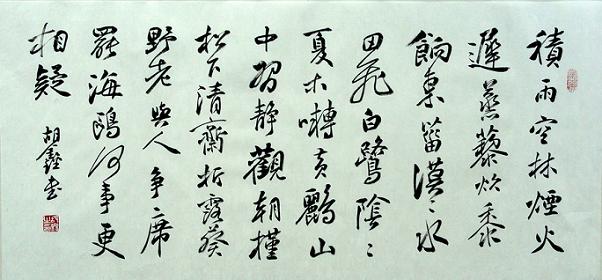 積雨空林煙火
遲蒸藜炊黍
餉東菑漠〻水
田飛白鷺陰〻
夏木囀黃鸝山
中習靜觀朝槿
松下清齋折露葵
野老與人爭席
罷海鷗何事更
相疑
胡鑫書